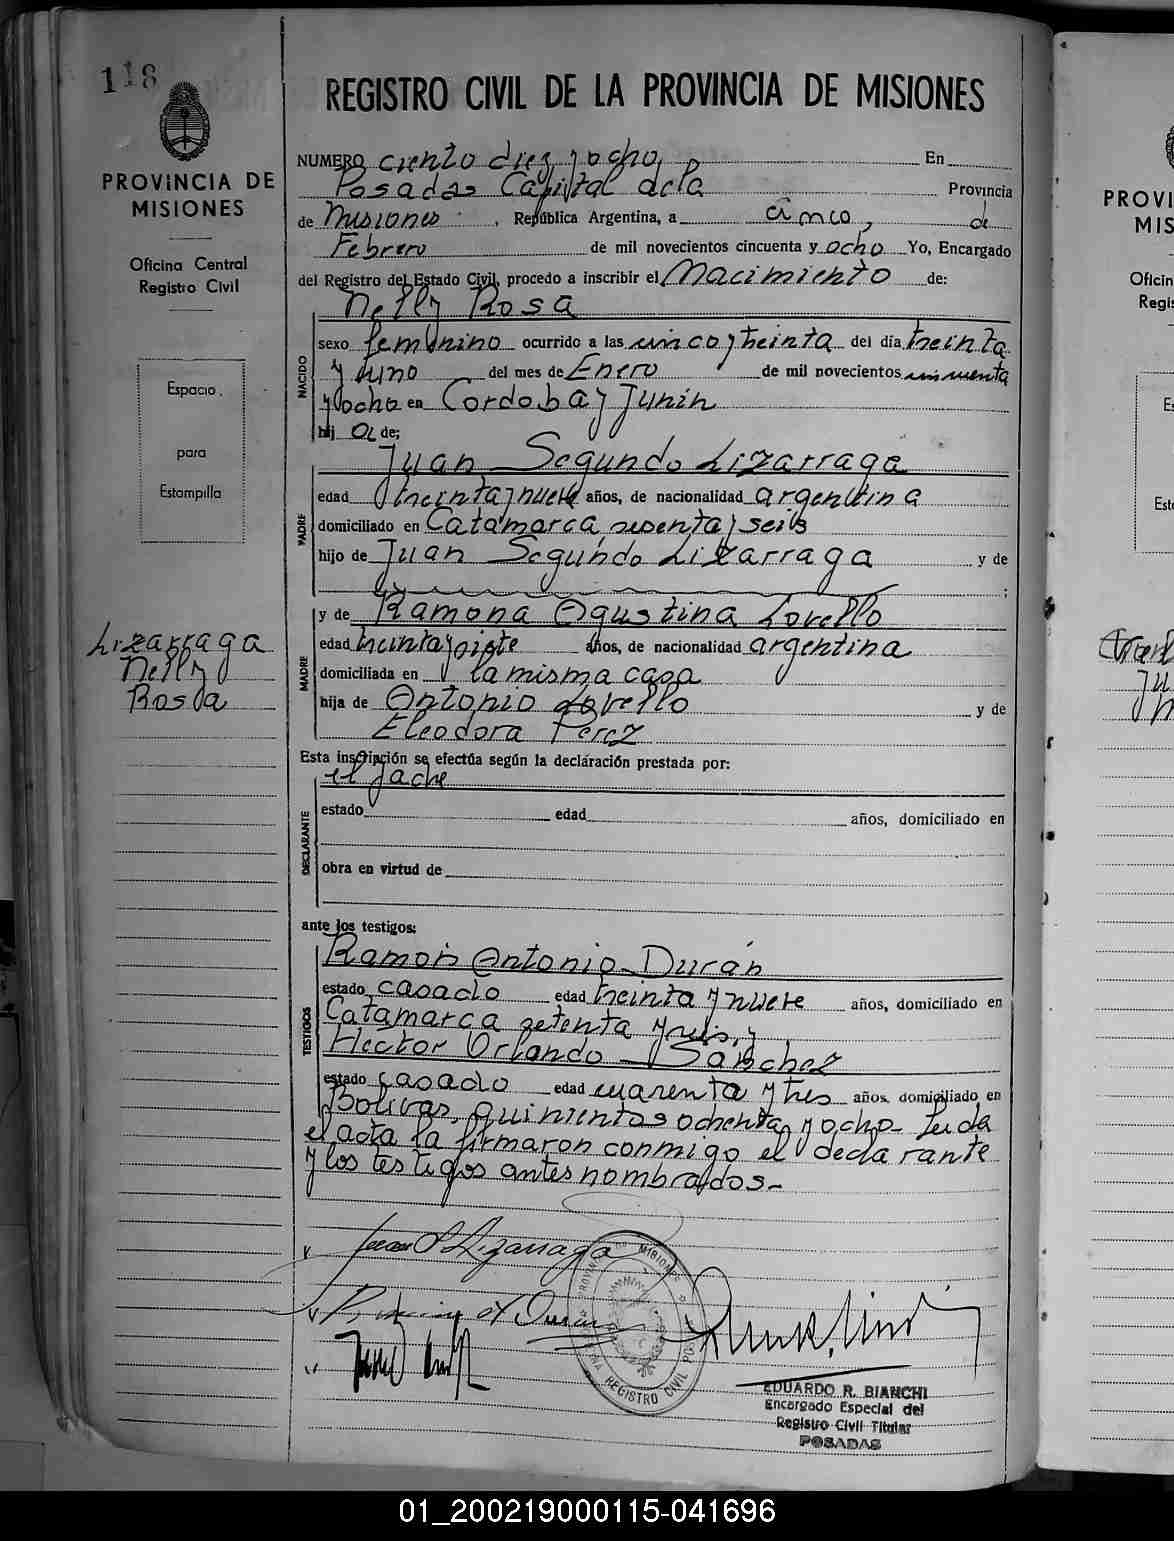 118
PROVINCIA DE
MISIONES
Oficina Central
Registro Civil
Espacio
para
Estampilla
Lizarraga
Nelly
Rosa
REGISTRO CIVIL DE LA PROVINCIA DE MISIONES
NUMERO ciento diez y ocho, En
Posadas Capital de la Provincia
de Misiones, República Argentina, a cinco, de
Febrero de mil novecientos cincuenta y ocho Yo, Encargado
del Registro del Estado Civil, procedo a inscribir el Nacimiento de:
Nelly Rosa
NACIDO
sexo femenino ocurrido a las cinco y treinta del día treinta
y uno del mes de Enero de mil novecientos cincuenta
y ocho en Cordoba y Junin
hij a de:
Juan Segundo Lizarraga
PADRE
edad treinta y nueve años, de nacionalidad argentina
domiciliado en Catamarca, sesenta y seis
hijo de Juan Segundo Lizarraga y de
y de Ramona Agustina Lovello
MADRE
edad treinta y siete años, de nacionalidad argentina
domiciliada en la misma casa
hija de Antonio Lovello y de
Eleodora Perez
Esta inscripción se efectúa según la declaración prestada por:
el padre
DECLARANTE
estado edad años, domiciliado en
obra en virtud de
ante los testigos:
Ramón Antonio Durán
TESTIGOS
estado casado edad treinta y nueve años, domiciliado en
Catamarca setenta y seis, y
Hector Orlando Sanchez
estado casado edad cuarenta y tres años, domiciliado en
Bolivar, quinientos ochenta y ocho- Leida
el acta la firmaron conmigo el declarante
y los testigos antes nombrados-
Juan S Lizarraga
PROVINCIA DE MISIONES
REGISTRO CIVIL
EDUARDO R. BIANCHI
Encargado Especial del
Registro Civil Titular
POSADAS
PROVI
MIS
Oficin
Regis
01_200219000115-041696